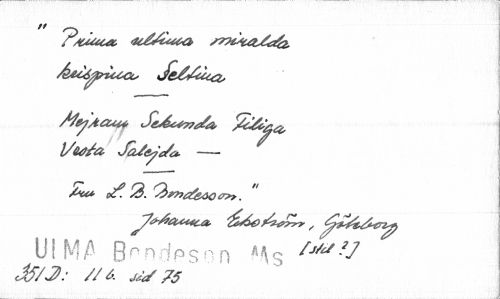 " Prima ultima miralda
krispina Seltina
—
Mejram Sekunda Filiga
Vesta Salejda —
—
Fru L. B. Bondesson."
Johanna Ekström, Göteborg
[stil ?]
ULMA Bondeson Ms
351 D: 11 b. sid 75